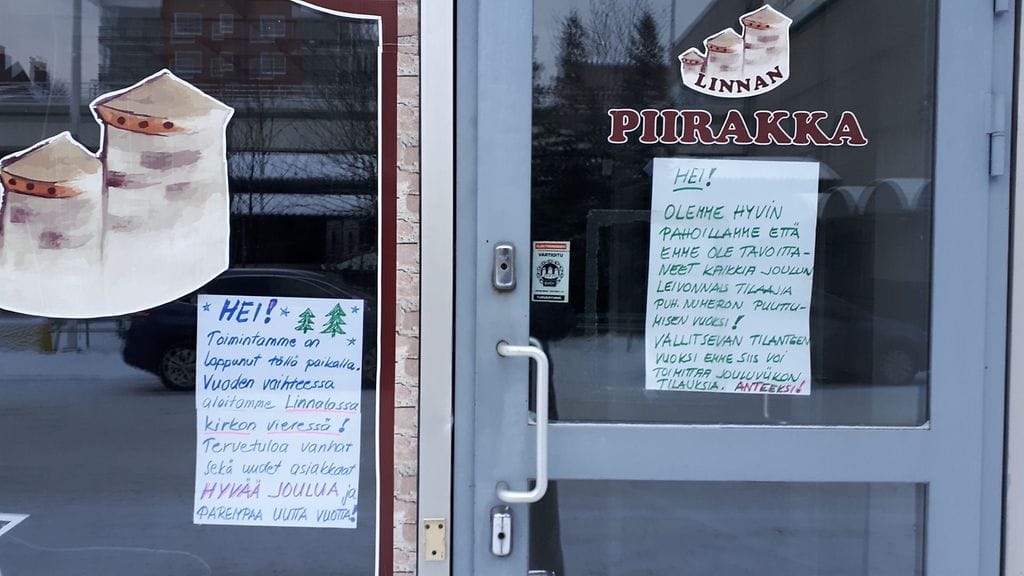 HEI!
Toimintamme on
loppunut tällä paikalla.
Vuoden vaihteessa
aloitamme Linnalassa
kirkon vieressä!
Tervetuloa vanhat
sekä uudet asiakkaat
HYVÄÄ JOULUA ja
PAREMPAA UUTTA VUOTTA!
LINNAN
PIIRAKKA
HEI!
OLEMME HYVIN
PAHOILLAMME ETTÄ
EMME OLE TAVOITTA-
NEET KAIKKIA JOULUN
LEIVONNAIS TILAAJIA
PUH. NUMERON PUUTTU-
MISEN VUOKSI!
VALLITSEVAN TILANTEEN
VUOKSI EMME SIIS VOI
TOIMITTAA JOULUVIIKON
TILAUKSIA. ANTEEKSI!
VARTIOITU